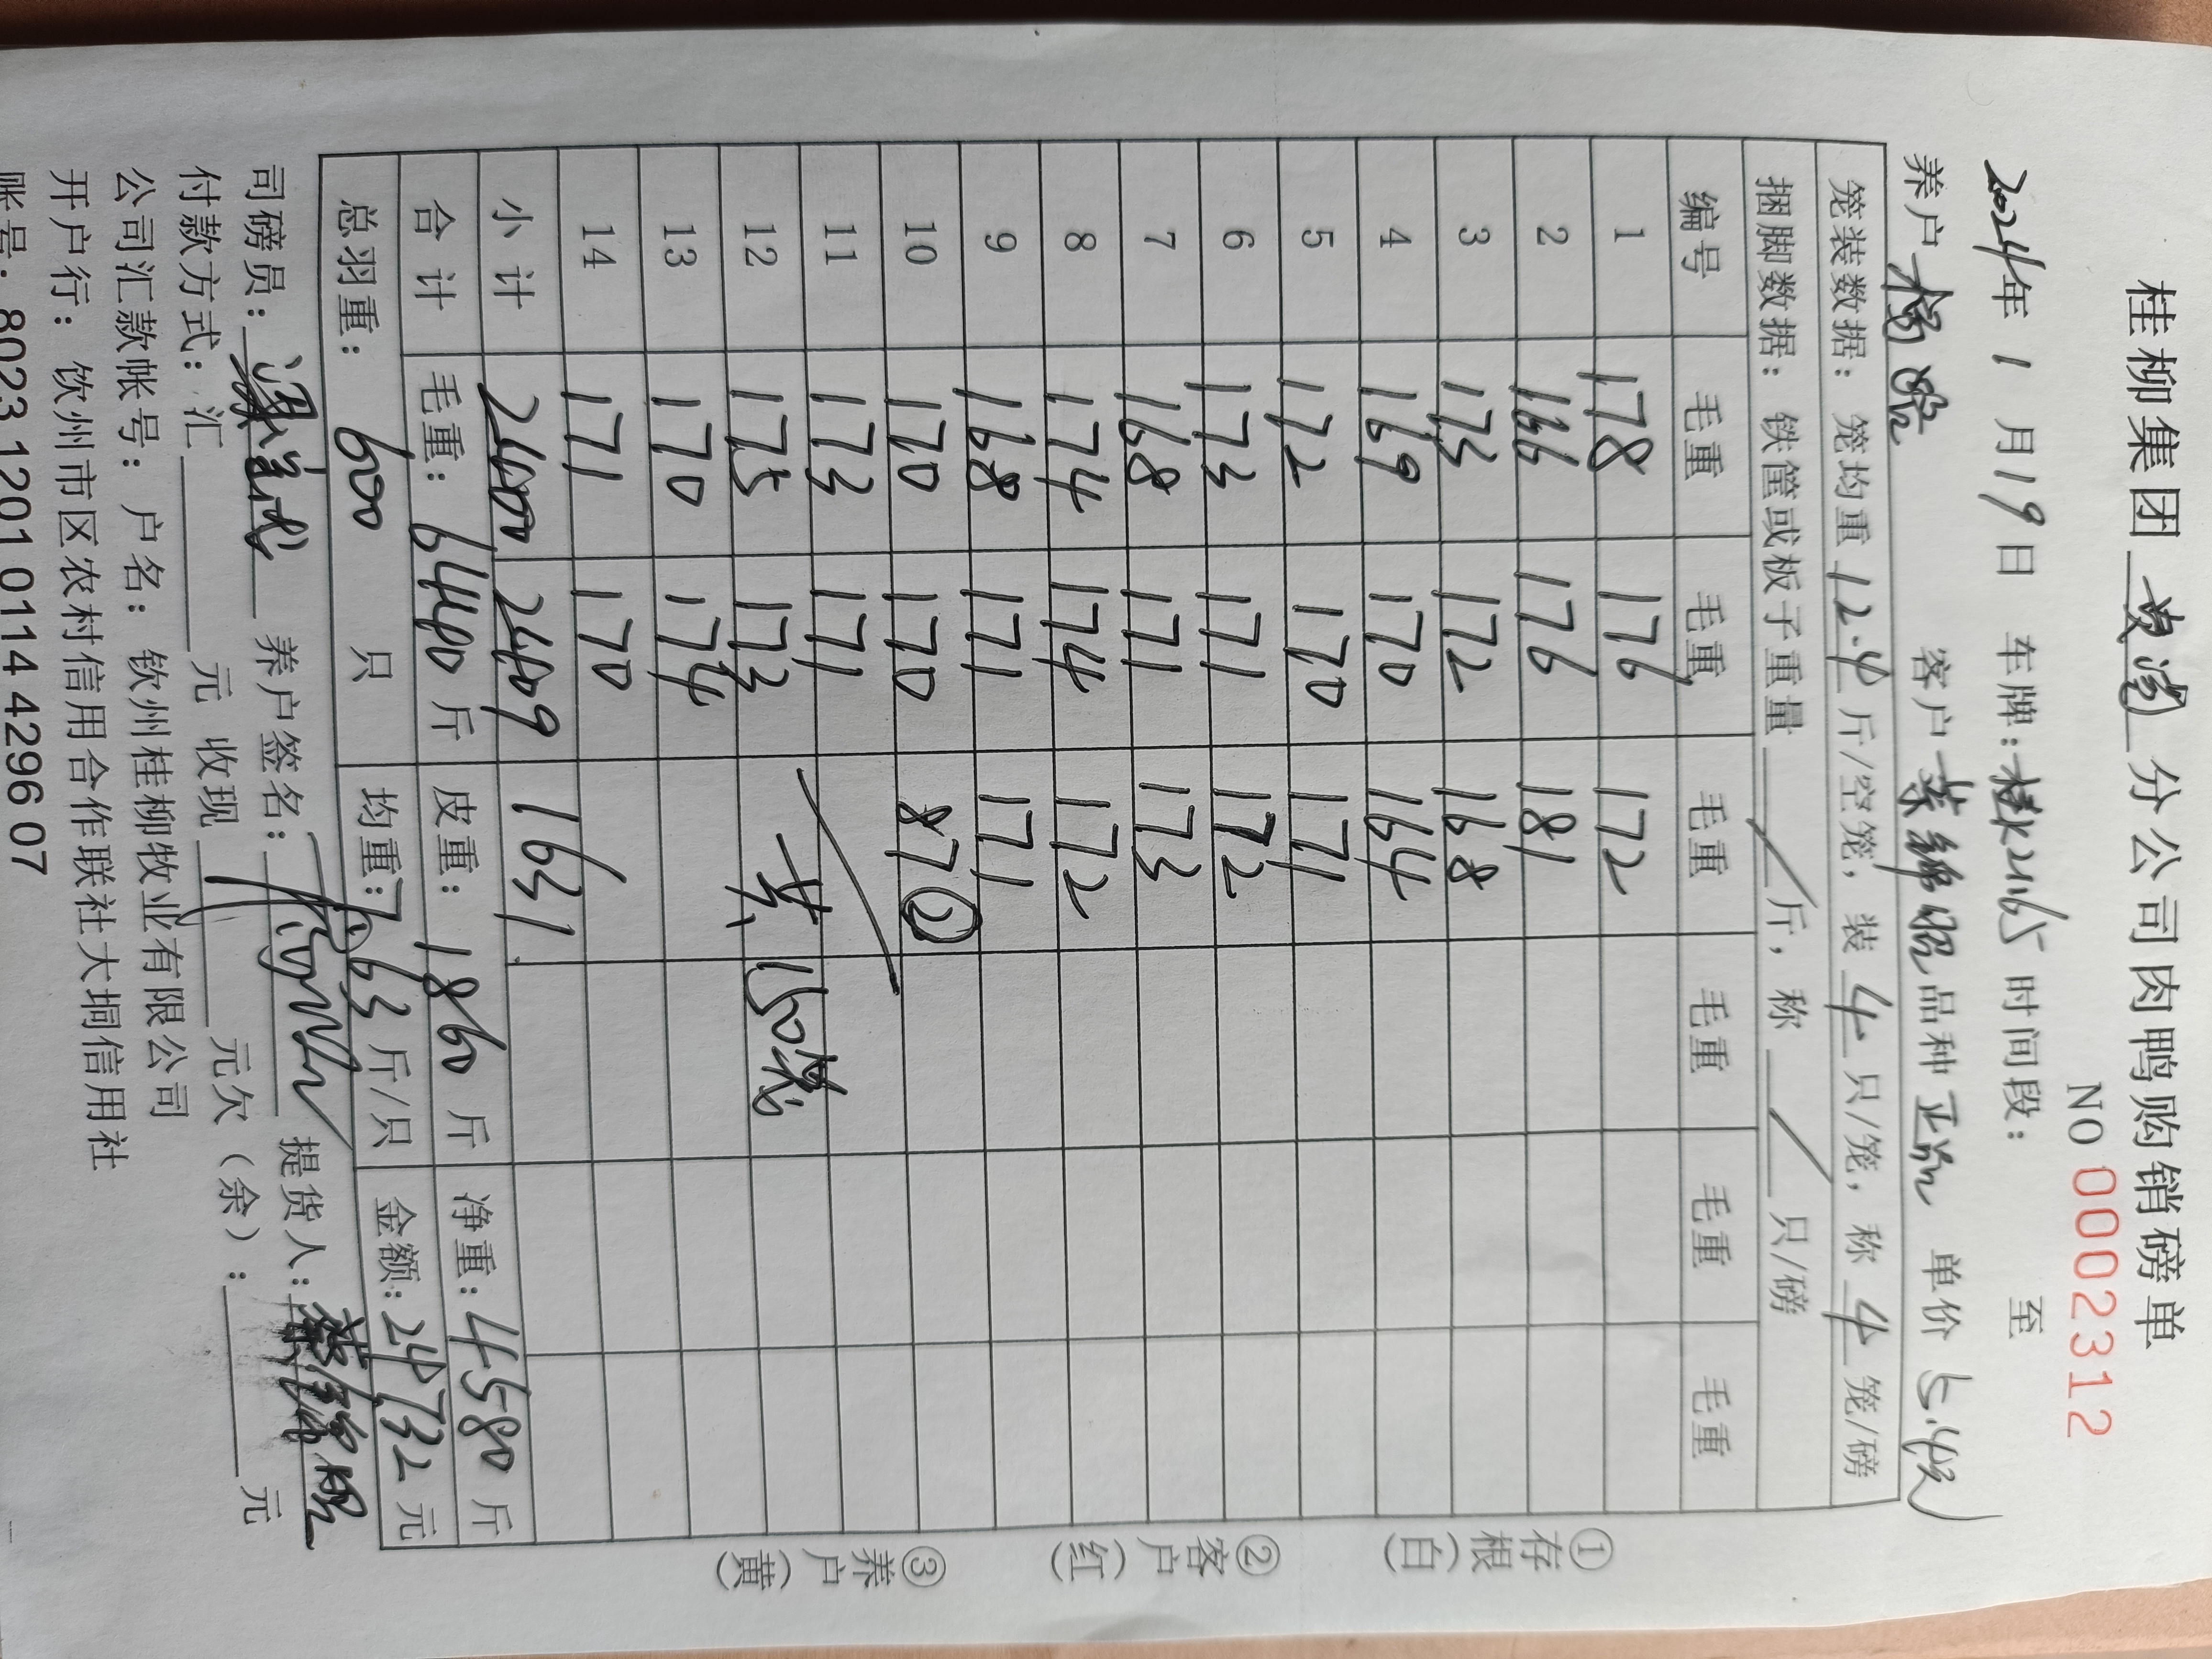 桂柳集团 灵湾 分公司肉鸭购销磅单
NO 0002312
2024年 1 月19日 车牌:桂K21165 时间段: 至
养户 客户 品种 正品 单价 5.4
笼装数据: 笼均重 12.4 斤/空笼, 装 4 只/笼, 称 4 笼/磅
捆脚数据: 铁筐或板子重量 / 斤, 称 / 只/磅
编号 毛重 毛重 毛重 毛重 毛重 毛重
1 178 176 172
2 166 176 181
3 173 172 168
4 169 170 164
5 172 170 171
6 173 171 172
7 168 171 173
8 174 174 172
9 168 171 171
10 170 170 87②
11 173 171
12 175 173 共150笼
13 170 174
14 171 170
小计 2400 2409 1631
合计 毛重: 6440 斤 皮重: 1860 斤 净重: 4580 斤
总羽重: 600 只 均重: 7.63 斤/只 金额: 24732 元
司磅员: 养户签名: 提货人:
付款方式: 汇 元 收现 元 元欠(余): 元
公司汇款帐号: 户名: 钦州桂柳牧业有限公司
开户行: 钦州市区农村信用合作联社大垌信用社
账号: 8023 1201 0114 4296 07
①存根(白) ②客户(红) ③养户(黄)